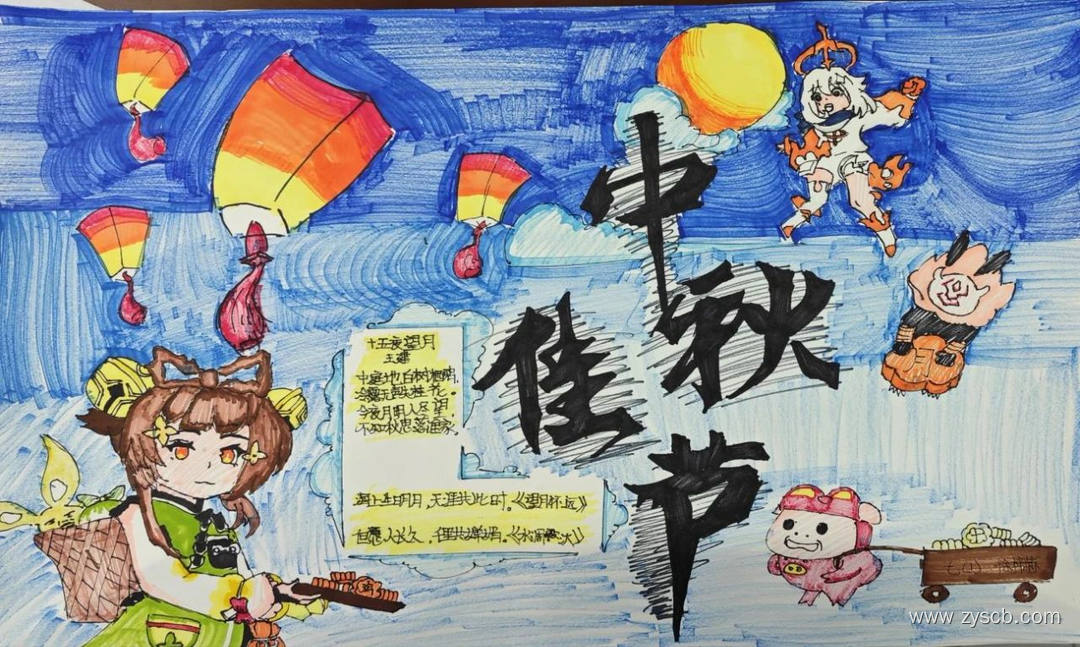 中秋
佳节
十五夜望月
王建
中庭地白树栖鸦,
冷露无声湿桂花。
今夜月明人尽望,
不知秋思落谁家。
海上生明月,天涯共此时。《望月怀远》
但愿人长久,千里共婵娟。《水调歌头》
www.zyscb.com